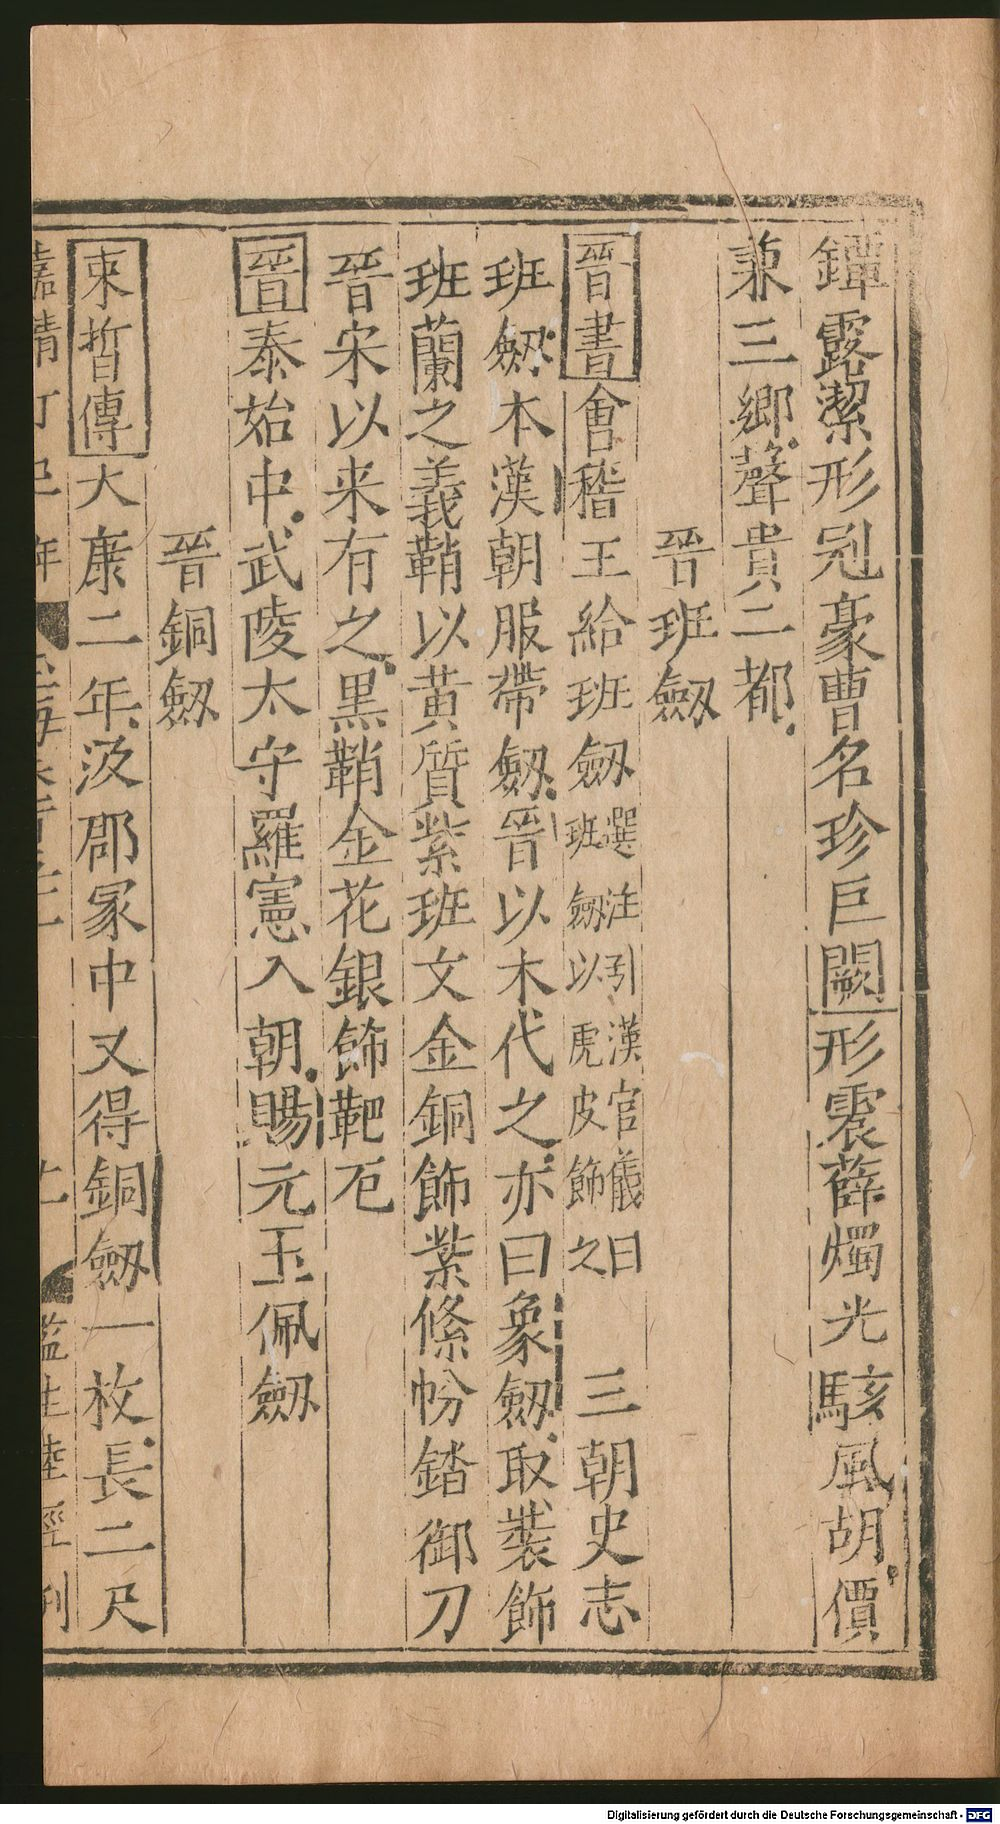 鐔露潔形冠豪曹名珍巨闕形震薛燭光駭風胡價
兼三鄉聲貴二都
晉班劒
晉書會稽王給班劒選注引漢官儀曰班劒以虎皮飾之 三朝史志
班劒本漢朝服帶劒晉以木代之亦曰象劒取裝飾
班蘭之義鞘以黃質紫班文金銅飾紫絛帉錔御刀
晉宋以来有之黑鞘金花銀飾靶㔾
晉泰始中武陵太守羅憲入朝賜元玉佩劒
晉銅劒
束晳傳大康二年汲郡冢中又得銅劒一枚長二尺
嘉靖丁巳年
監生陸經刊
Digitalisierung gefördert durch die Deutsche Forschungsgemeinschaft - DFG